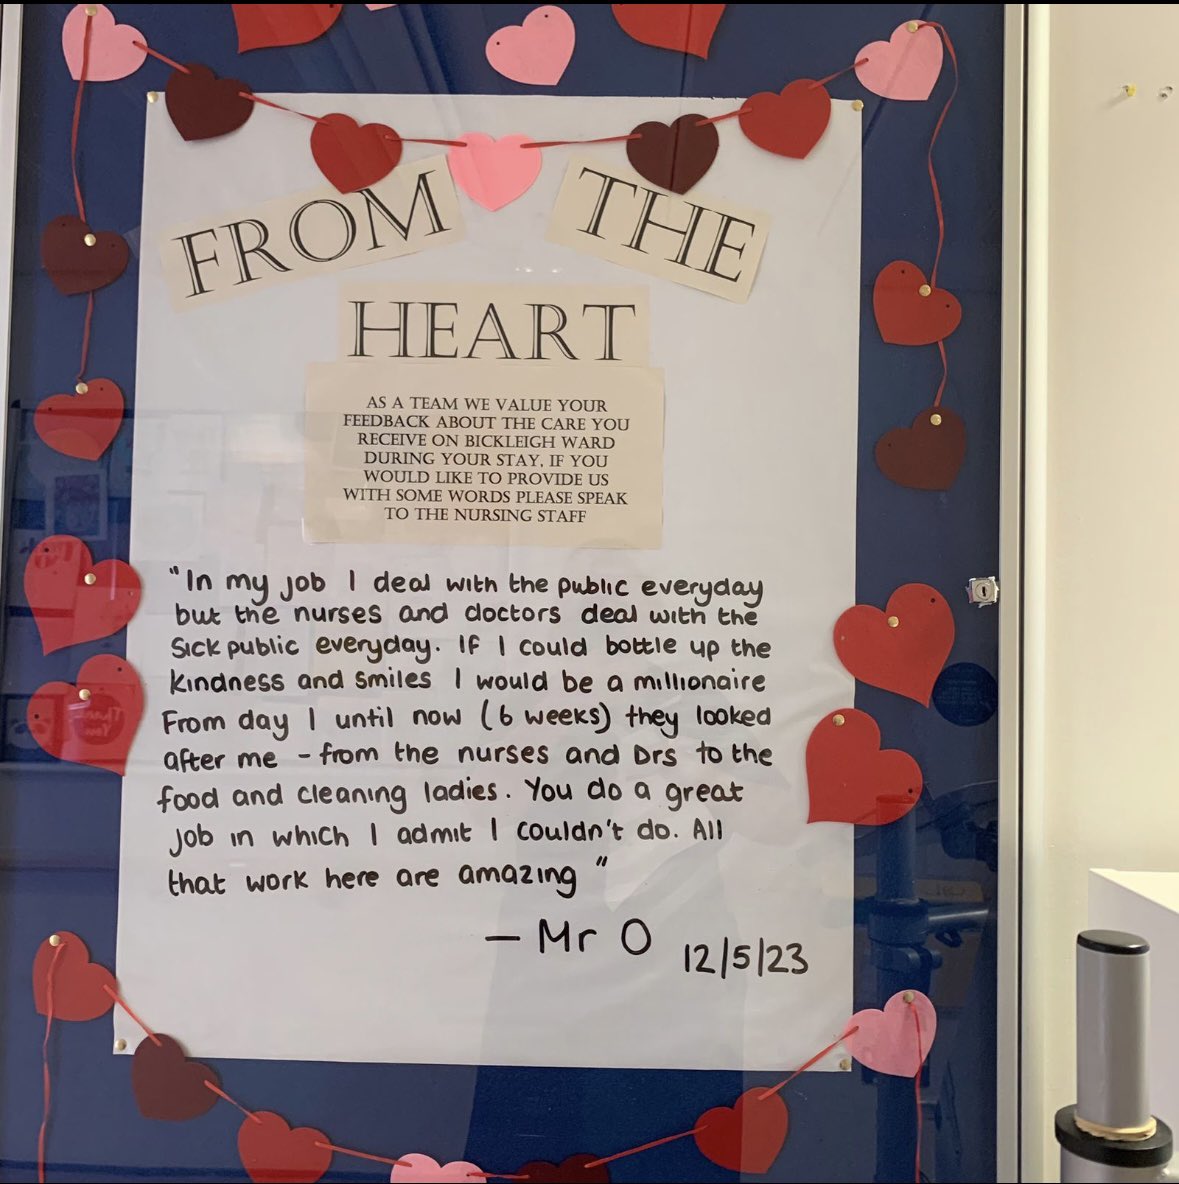 FROM THE
HEART
AS A TEAM WE VALUE YOUR
FEEDBACK ABOUT THE CARE YOU
RECEIVE ON BICKLEIGH WARD
DURING YOUR STAY, IF YOU
WOULD LIKE TO PROVIDE US
WITH SOME WORDS PLEASE SPEAK
TO THE NURSING STAFF
"In my job I deal with the public everyday
but the nurses and doctors deal with the
sick public everyday. If I could bottle up the
kindness and smiles I would be a millionaire
From day 1 until now (6 weeks) they looked
after me - from the nurses and Drs to the
food and cleaning ladies. You do a great
job in which I admit I couldn't do. All
that work here are amazing"
- Mr O 12/5/23